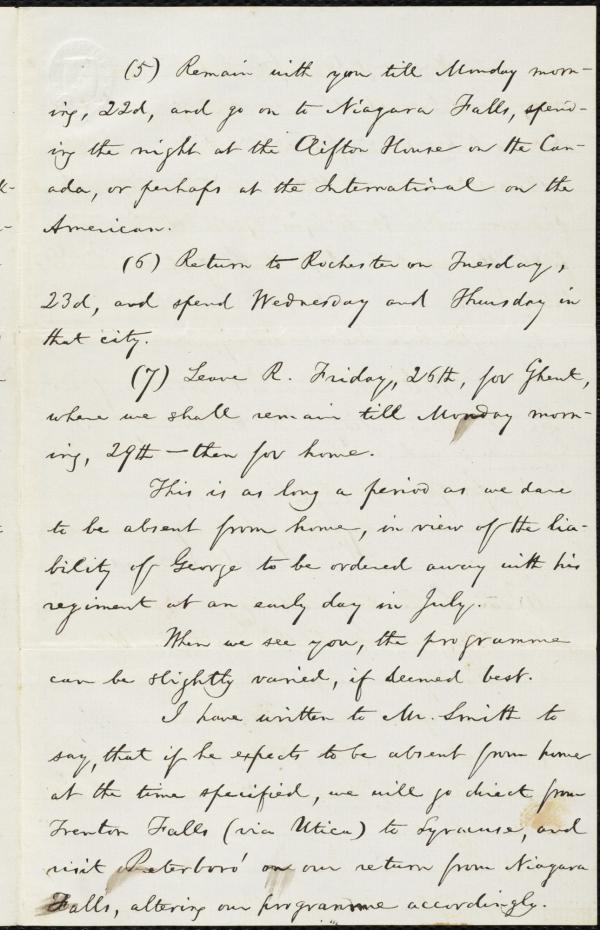 (5) Remain with you till Monday morn-
ing, 22d, and go on to Niagara Falls, spend-
ing the night at the Clifton House on the Can-
ada, or perhaps at the International on the
American.
(6) Return to Rochester on Tuesday,
23d, and spend Wednesday and Thursday in
that city.
(7) Leave R. Friday, 26th, for Ghent,
where we shall remain till Monday morn-
ing, 29th — then for home.
This is as long a period as we dare
to be absent from home, in view of the lia-
bility of George to be ordered away with his
regiment at an early day in July.
When we see you, the programme
can be slightly varied, if deemed best.
I have written to Mr. Smith to
say, that if he expects to be absent from home
at the time specified, we will go direct from
Trenton Falls (via Utica) to Syracuse, and
visit Peterboro' on our return from Niagara
Falls, altering our programme accordingly.